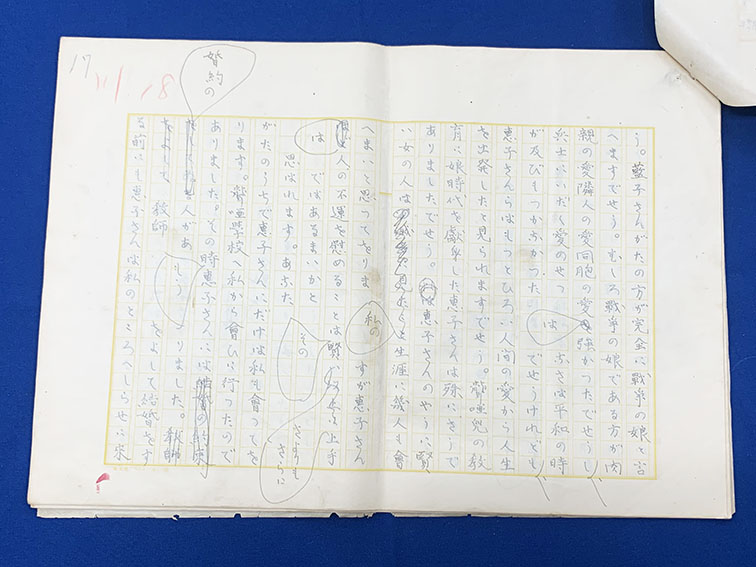 う。藍子さんがたの方が完全に戦争の娘と言
へますでせう。むしろ戦争の娘である方が肉
親の愛隣人の愛同胞の愛強かつたでせうし
兵士にいだく愛のせつ
は
なさは平和の時
が及びもつかなかつた
でせうけれども
恵子さんらはもつとひろい人間の愛から人生
を出発したと見られますでせう。聾唖児の教
育に娘時代を獻身した恵子さんは殊にさうで
ありましたでせう。
は恵子さんのやうに賢
い女の人は
生涯に幾人も會
へまいと思つてをりま
私の
すが恵子さん
人の不運を慰めることは
上手
は
ではあるまいかと
思はれます。あなた
その
さまも
さらに
がたのうちで恵子さんにだけは私も會つてを
ります。聾唖學校へ私から會ひに行つたので
ありました。その時恵子さんには
婚約の
人があ
もう
りました。教師
教師
をよして結婚をす
る前にも恵子さんは私のところへしらせに来
17
18